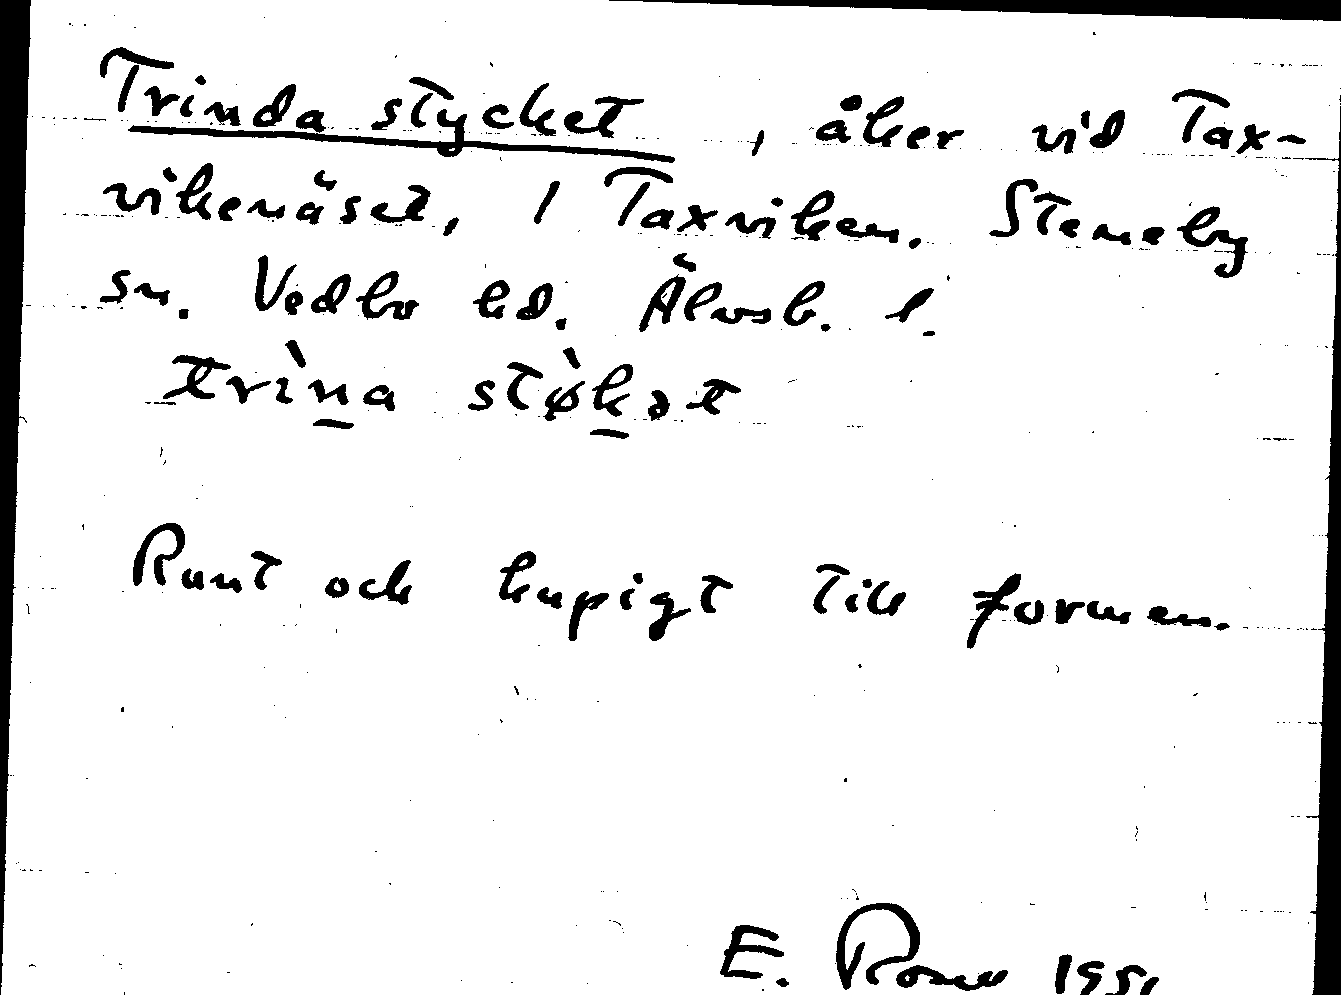 Trinda stycket, åker vid Tax-
vikenäset, 1 Taxviken. Steneby
sn. Vedbo hd. Älvsb. l.
trìn̲a støk̲̀ət
Runt och kupigt till formen.
E.